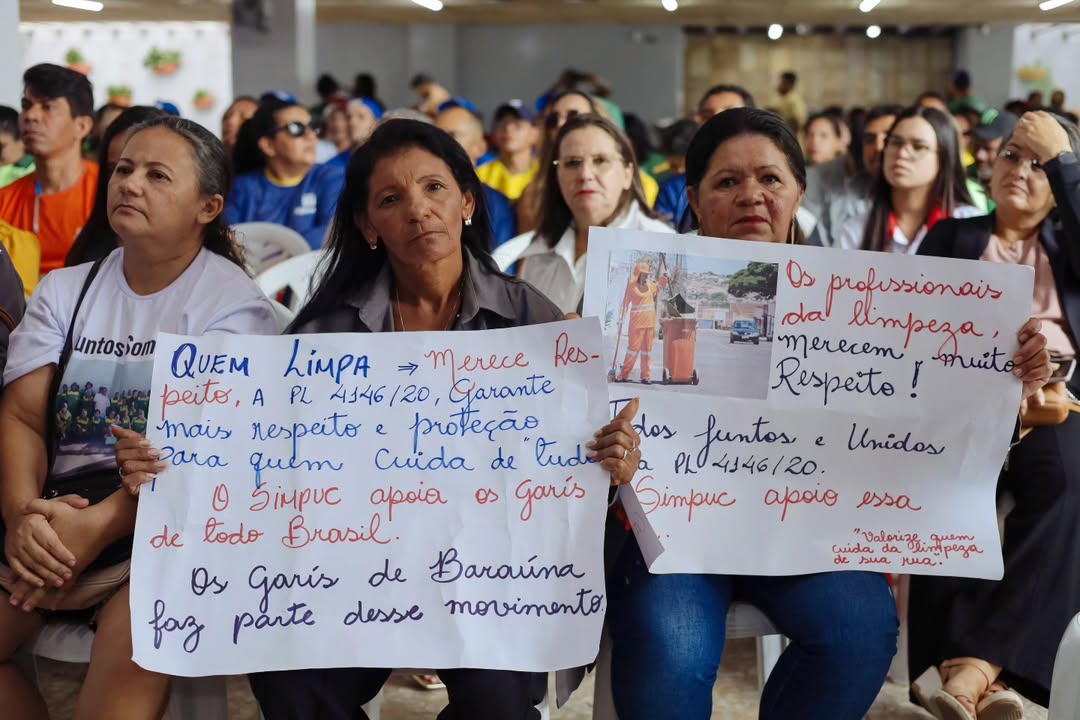 untos somo
QUEM LIMPA ⇒ Merece Res-
peito, A PL 4146/20, Garante
mais respeito e proteção
para quem cuida de "tudo
O SIMPUC apoia os Garís
de todo Brasil.
Os Garís de Baraúna
faz parte desse movimento.
Os profissionais
da limpeza,
merecem muito
Respeito!
dos juntos e Unidos
a PL 4146/20.
Simpuc apoio essa
"Valorize quem
cuida da limpeza
de sua rua".